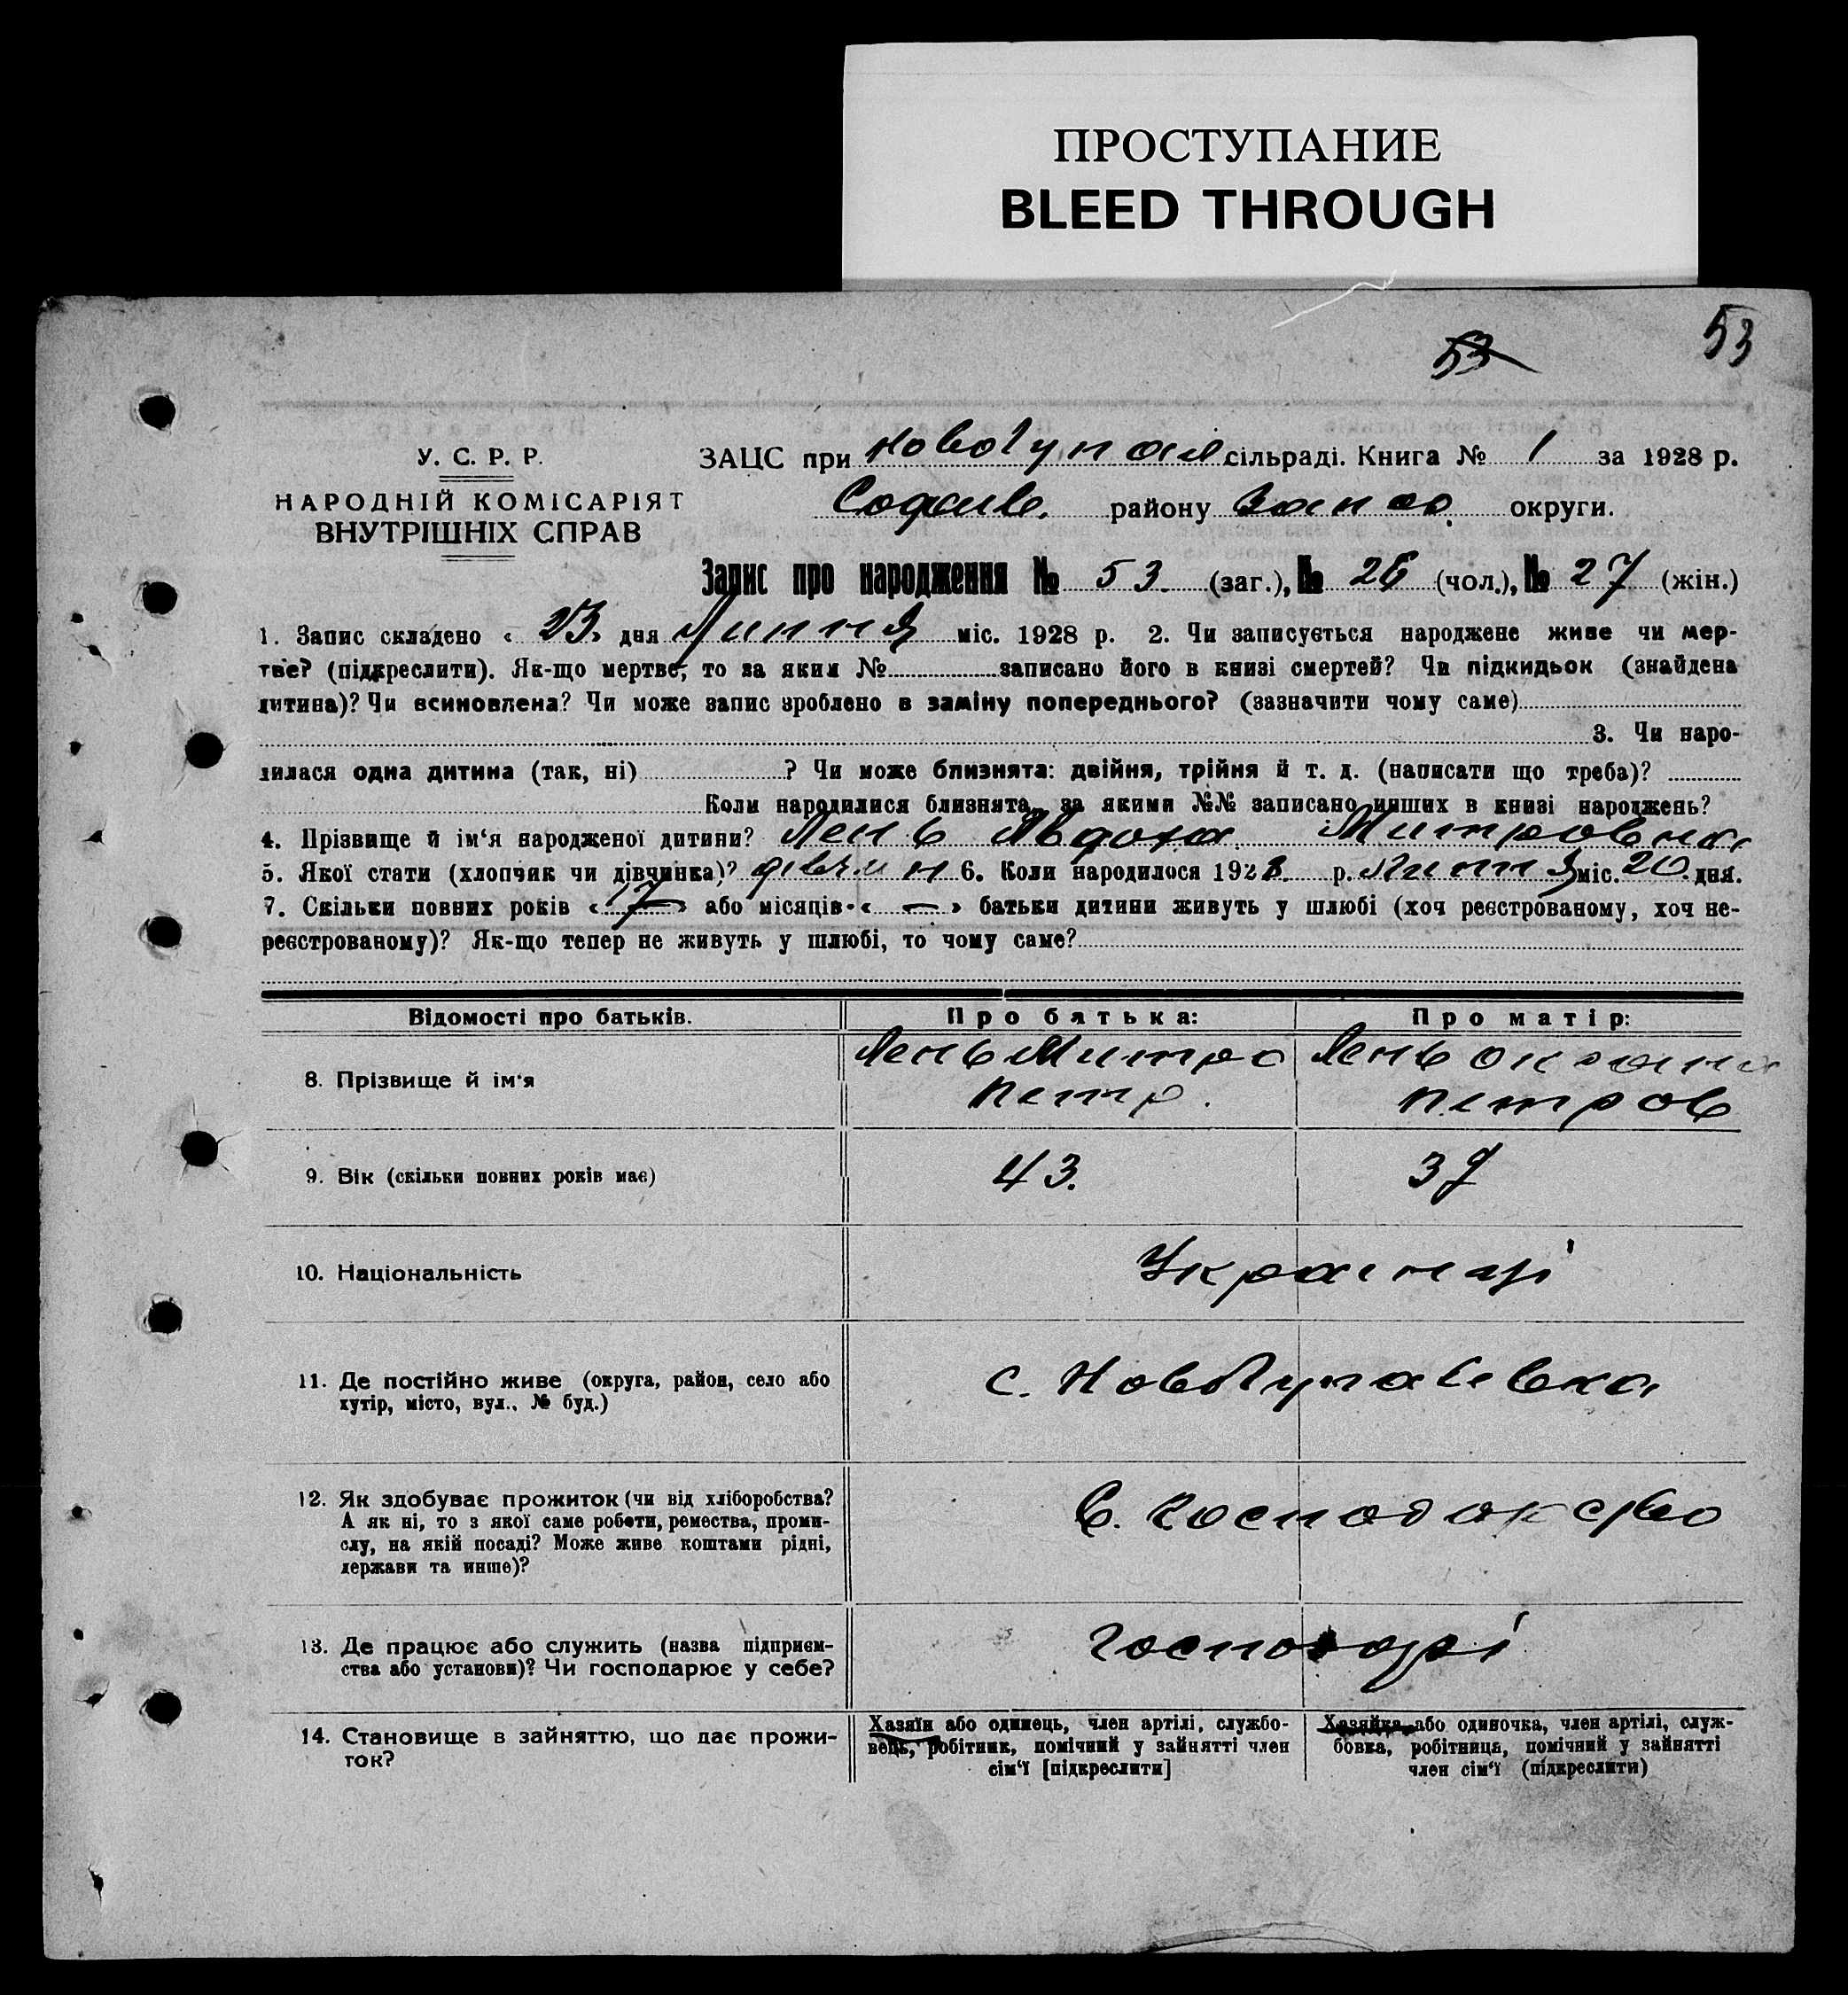 ПРОСТУПАНИЕ
BLEED THROUGH
53
53
У. С. Р. Р.
НАРОДНІЙ КОМІСАРІЯТ
ВНУТРІШНІХ СПРАВ
ЗАЦС при сільраді. Книга № 1 за 1928 р.
району округи.
Запис про народження № 53. (заг.), № 26 (чол.), № 27 (жін.)
1. Запис складено « 23. дня Липня міс. 1928 р. 2. Чи записується народжене живе чи мер-
тве? (підкреслити). Як-що мертве, то за яким № записано його в книзі смертей? Чи підкидьок (знайдена
дитина)? Чи всиновлена? Чи може запис зроблено в заміну попереднього? (зазначити чому саме)
3. Чи наро-
дилася одна дитина (так, ні) ? Чи може близнята: двійня, трійня й т. д. (написати що треба)?
Коли народилися близнята, за якими №№ записано инших в книзі народжень?
4. Прізвище й ім‘я народженої дитини? Лень Явдоха Митровна
5. Якої стати (хлопчик чи дівчинка)? дівчин 6. Коли народилося 1928 р. Липня міс. 20. дня.
7. Скільки повних років « 17 » або місяців « — » батьки дитини живуть у шлюбі (хоч реєстрованому, хоч не-
реєстрованому)? Як-що тепер не живуть у шлюбі, то чому саме?
Відомості про батьків. Про батька: Про матір:
8. Прізвище й ім‘я Лень Митро Лень
Петр. Петров
9. Вік (скільки повних років має) 43. 37
10. Національність Українці
11. Де постійно живе (округа, район, село або
хутір, місто, вул., № буд.) с.
12. Як здобуває прожиток (чи від хліборобства?
А як ні, то з якої саме роботи, ремества, проми-
слу, на якій посаді? Може живе коштами рідні,
держави та инше)? С. господарство
13. Де працює або служить (назва підприєм-
ства або установи)? Чи господарює у себе? господарі
14. Становище в зайняттю, що дає прожи-
ток?
Хазяїн або одинець, член артілі, службо-
вець, робітник, помічний у зайнятті член
сім‘ї [підкреслити]
Хазяйка або одиночка, член артілі, служ-
бовка, робітниця, помічний у зайнятті
член сім‘ї (підкреслити)